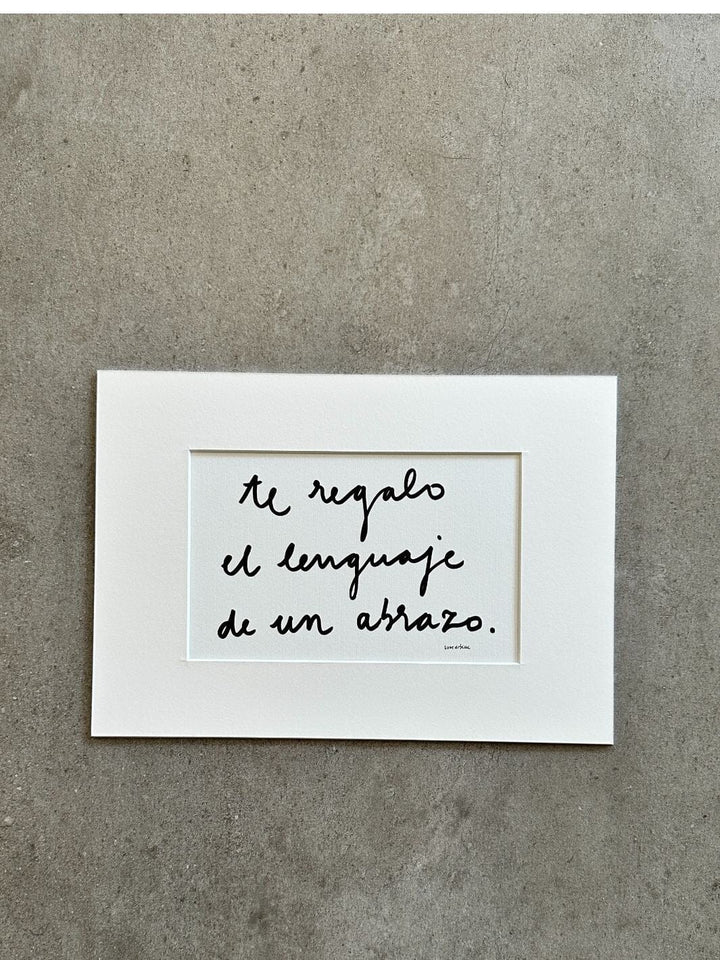 te regalo
el lenguaje
de un abrazo.